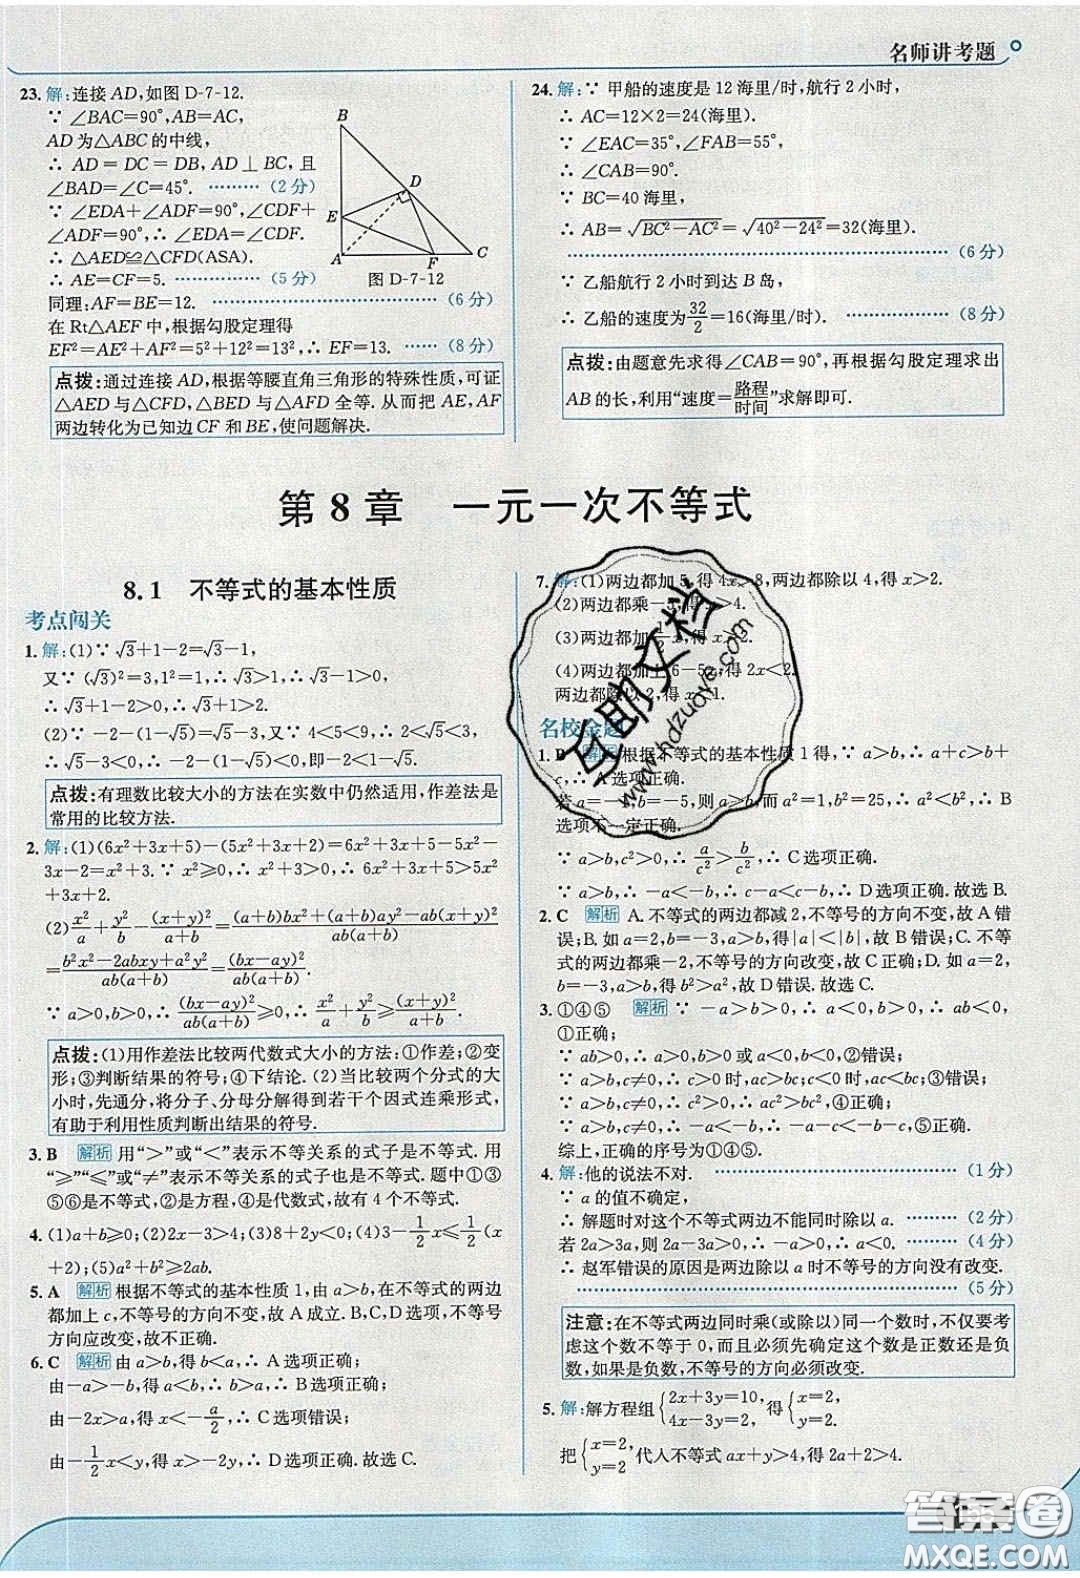 名师讲考题
23. 解:连接 AD,如图 D-7-12.
∵ ∠BAC=90°,AB=AC,
AD 为△ABC 的中线,
∴ AD = DC = DB, AD ⊥ BC, 且
∠BAD=∠C=45°. ………(2 分)
∵ ∠EDA+∠ADF=90°,∠CDF+
∠ADF=90°,∴ ∠EDA=∠CDF.
∴ △AED≌△CFD(ASA).
∴ AE=CF=5. ………(5 分)
B
D
E
A
F
C
图 D-7-12
同理:AF=BE=12. ………(6 分)
在 Rt△AEF 中,根据勾股定理得
EF²=AE²+AF²=5²+12²=13²,∴ EF=13. ……(8 分)
点拨:通过连接 AD,根据等腰直角三角形的特殊性质,可证
△AED 与△CFD,△BED 与△AFD 全等. 从而把 AE,AF
两边转化为已知边 CF 和 BE,使问题解决.
24. 解:∵ 甲船的速度是 12 海里/时,航行 2 小时,
∴ AC=12×2=24(海里).
∵ ∠EAC=35°,∠FAB=55°,
∴ ∠CAB=90°.
∵ BC=40 海里,
∴ AB=√(BC²-AC²)=√(40²-24²)=32(海里).
………(6 分)
∵ 乙船航行 2 小时到达 B 岛,
∴ 乙船的速度为32/2=16(海里/时). ………(8 分)
点拨:由题意先求得∠CAB=90°,再根据勾股定理求出
AB 的长,利用“速度=路程/时间”求解即可.
第 8 章 一元一次不等式
8.1 不等式的基本性质
考点闯关
1. 解:(1)∵ √3+1-2=√3-1,
又∵ (√3)²=3,1²=1,∴ √3>1.
∴ √3+1-2>0,∴ √3+1>2.
(2)∵ -2-(1-√5)=√5-3. 又∵ 4<5<9,∴ 2<√5<3,
∴ √5-3<0. ∴ -2-(1-√5)<0,即-2<1-√5.
点拨:有理数比较大小的方法在实数中仍然适用,作差法是
常用的比较方法.
2. 解:(1)(6x²+3x+5)-(5x²+3x+2)=6x²+3x+5-5x²-
3x-2=x²+3. ∵ x²≥0,∴ x²+3>0,∴ 6x²+3x+5>5x²
+3x+2.
(2)x²/a+y²/b-(x+y)²/(a+b)=((a+b)bx²+(a+b)ay²-ab(x+y)²)/(ab(a+b))
=(b²x²-2abxy+a²y²)/(ab(a+b))=(bx-ay)²/(ab(a+b)).
∵ a>0,b>0,∴ (bx-ay)²/(ab(a+b))≥0,∴ x²/a+y²/b≥(x+y)²/(a+b).
点拨:(1)用作差法比较两代数式大小的方法:①作差;②变
形;③判断结果的符号;④下结论. (2)当比较两个分式的大
小时,先通分,将分子、分母分解得到若干个因式连乘形式,
有助于利用性质判断出结果的符号.
3. B 解析 用“>”或“<”表示不等关系的式子是不等式. 用
“≥”“≤”或“≠”表示不等关系的式子也是不等式. 题中①③
⑤⑥是不等式,②是方程,④是代数式,故有 4 个不等式.
4. (1)a+b≥0;(2)2x-3>4;(3)8+2y<0;(4)3-1/2x≤1/2(x
+2);(5)a²+b²≥2ab.
5. A 解析 根据不等式的基本性质 1,由 a>b,在不等式的两边
都加上 c,不等号的方向不变,故 A 成立. B,C,D 选项,不等号
方向应改变,故不正确.
6. C 解析 由 a>b,得 b<a,∴ A 选项正确;
由-a>-b,得 a<b,∴ B 选项正确;
由-2x>a,得 x<-a/2,∴ C 选项错误;
由-1/2x<y,得 x>-2y,∴ D 选项正确. 故选 C.
7. 解:(1)两边都加 5,得 4x>8,两边都除以 4,得 x>2.
(2)两边都乘-3,得 x>4.
(3)两边都加 得 x>2.
(4)两边都加上 6-5x,得 2x<2.
两边都除以 2,得 x<1.
名校金题
1. B 解析 根据不等式的基本性质 1 得,∵ a>b,∴ a+c>b+
c,∴ A 选项正确.
若 a=-1,b=-5,则 a>b,而 a²=1,b²=25,∴ a²<b²,∴ B
选项不一定正确.
∵ a>b,c²>0,∴ a/c²>b/c²,∴ C 选项正确.
∵ a>b,∴ -a<-b,∴ c-a<c-b,∴ D 选项正确. 故选 B.
2. C 解析 A. 不等式的两边都减 2,不等号的方向不变,故 A 错
误;B. 如 a=2,b=-3,a>b,得|a|<|b|,故 B 错误;C. 不等
式的两边都乘-2,不等号的方向改变,故 C 正确;D. 如 a=2,
b=-3,a>b,得 b²>a²,故 D 错误. 故选 C.
3. ①④⑤ 解析 ∵ -a>b>0,∴ a<0,b>0,∴ ab<0,
①正确;
∵ ab>0,∴ a>0,b>0 或 a<0,b<0,②错误;
∵ a>b,c≠0,∴ c>0 时,ac>bc;c<0 时,ac<bc;③错误;
∵ a>b,c≠0,∴ c²>0,∴ ac²>bc²,④正确;
∵ a>b,c≠0,∴ -a<-b,∴ -a-c<-b-c,⑤正确.
综上,正确的序号为①④⑤.
4. 解:他的说法不对. ………(1 分)
∵ a 的值不确定,
∴ 解题时对这个不等式两边不能同时除以 a. ………(2 分)
若 2a>3a,则 2a-3a>0,∴ -a>0,∴ a<0. ………(4 分)
∴ 赵军错误的原因是两边除以 a 时不等号的方向没有改变.
………(5 分)
注意:在不等式两边同时乘(或除以)同一个数时,不仅要考
虑这个数不等于 0,而且必须先确定这个数是正数还是负
数,如果是负数,不等号的方向必须改变.
5. 解:解方程组{2x+3y=10, 4x-3y=2,得{x=2, y=2.
把{x=2, y=2代入不等式 ax+y>4,得 2a+2>4.
互助文档
www.hdzuoye.com
答案圈
MXQE.COM